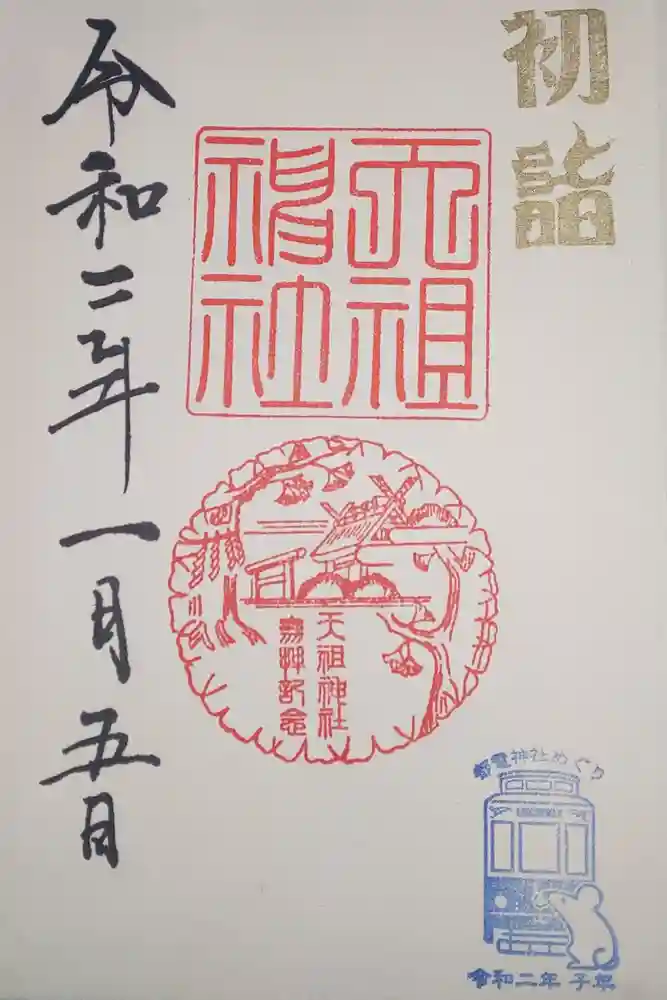 初詣
天祖
神社
天祖神社
参拝記念
令和二年一月五日
都電神社めぐり
令和二年 子年